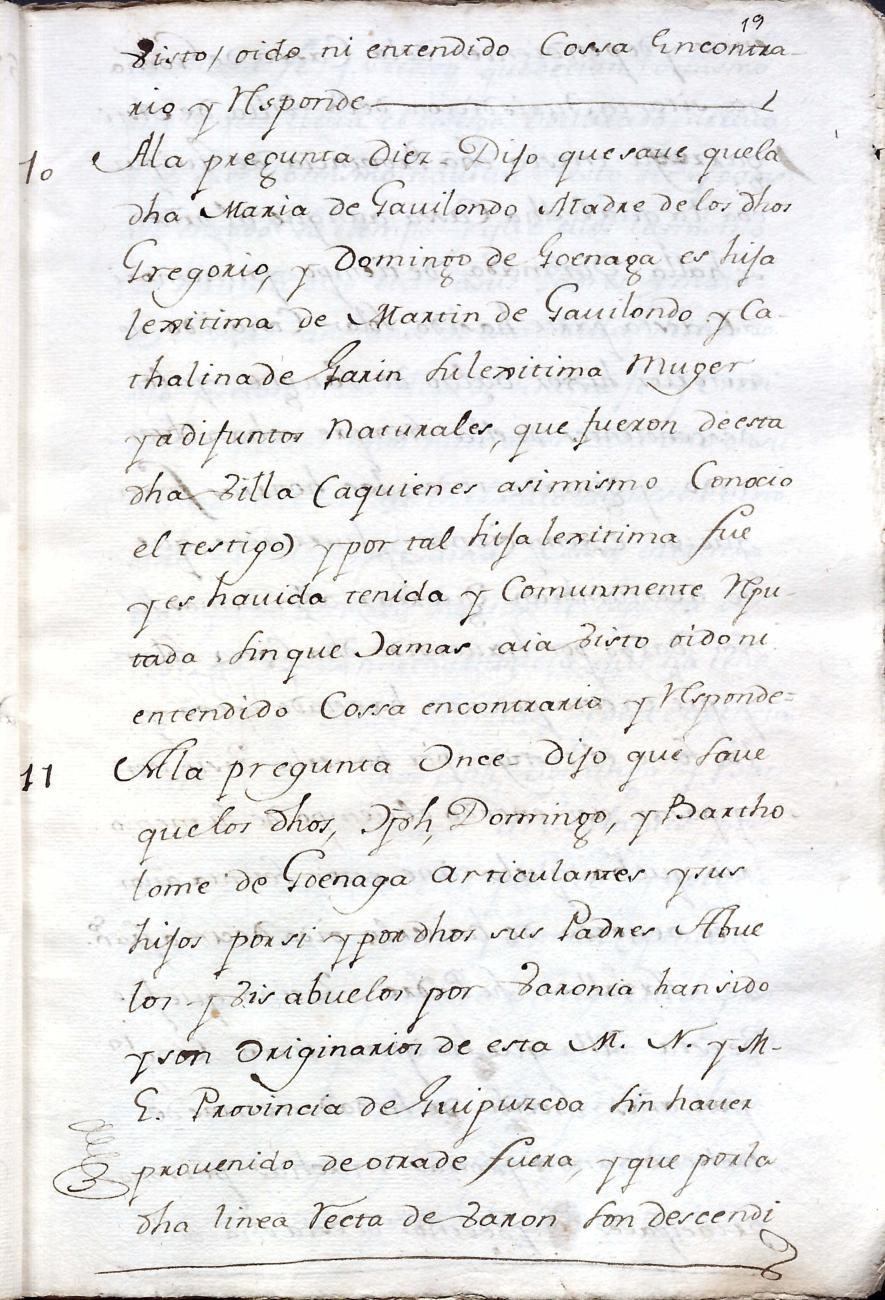 19
visto, oido ni entendido Cossa Encontra-
rio y Responde
10 Ala pregunta Diez = Dijo que saue quela
dha Maria de Gauilondo Madre delos dhos
Gregorio, y Domingo de Goenaga es hija
lexitima de Martin de Gauilondo y Ca-
thalina de Garin su lexitima Muger
ya difuntos Naturales, que fueron de esta
dha Villa (aquienes asimismo Conocio
el testigo) y por tal hija lexitima fue
y es hauida tenida y Comunmente Repu-
tada sin que Jamas aia visto oido ni
entendido Cossa encontrario y Responde=
11 Ala pregunta Once= dijo que saue
que los dhos, Jph, Domingo, y Bartho
lome de Goenaga articulantes y sus
hijos por si y por dhos sus Padres Abue
los y Vis abuelos por Varonia han sido
y son Originarios de esta M. N. y M.
L. Provincia de Guipuzcoa sin hauer
prouenido de otra de fuera, y que por la
dha linea Recta de Varon son descendi